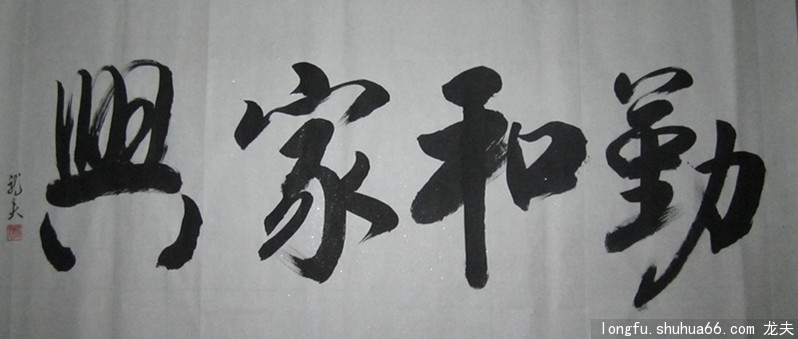 勤和家興
龍夫
longfu.shuhua66.com 龙夫